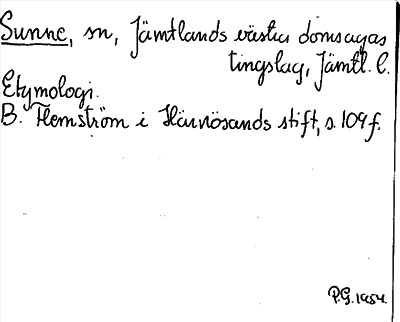 Sunne, sn, Jämtlands västra domsagas
tingslag, Jämtl. l.
Etymologi.
B. Flemström i Härnösands stift, s. 109 f.
P.G. 1954.